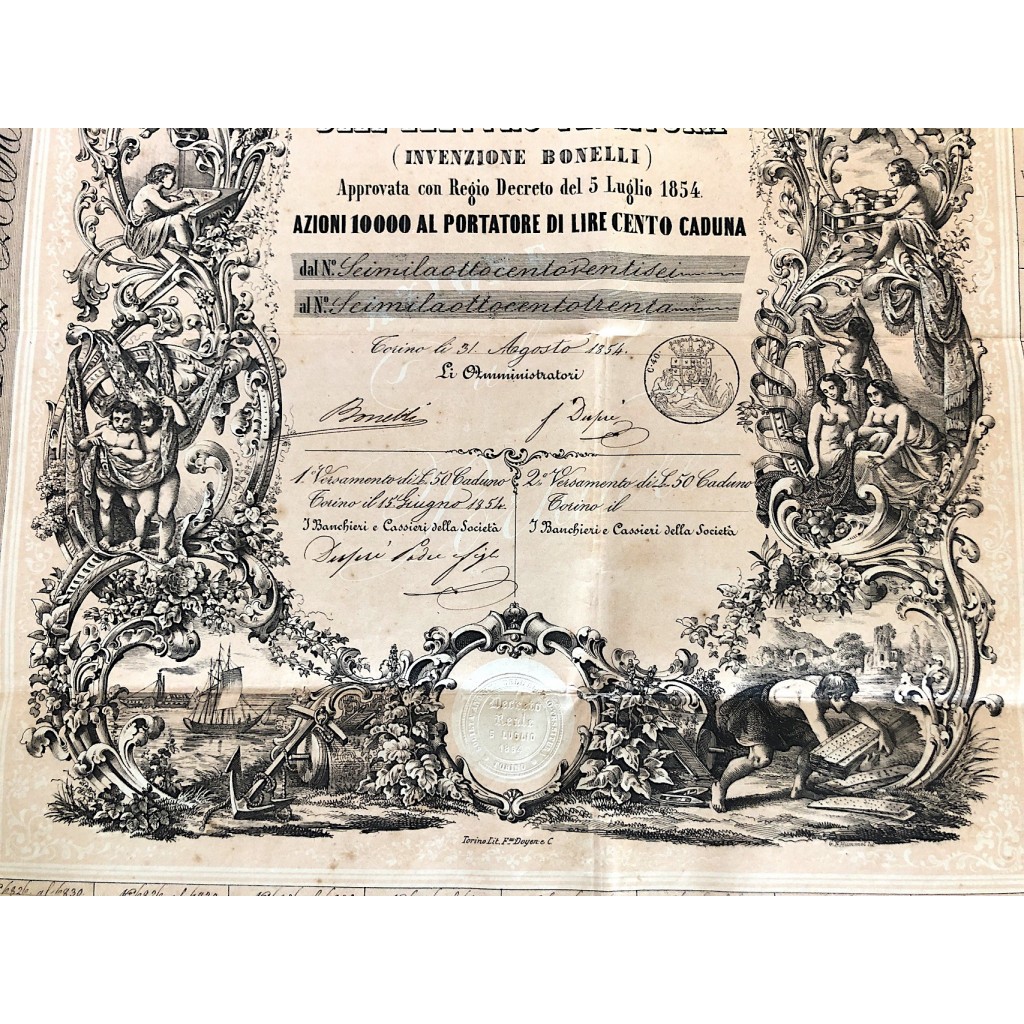 (INVENZIONE BONELLI)
Approvata con Regio Decreto del 5 Luglio 1854.
AZIONI 10000 AL PORTATORE DI LIRE CENTO CADUNA
dal N.º Seimilaottocentoventisei
al N.º Seimilaottocentotrenta
Torino li 31 Agosto 1854.
Li Amministratori
Bonelli
J Dupré
1.º Versamento di £.50 Caduno
Torino il 15 Giugno 1854.
I Banchieri e Cassieri della Società
Dupré Padre e figli
2.º Versamento di £.50 Caduno
Torino il
I Banchieri e Cassieri della Società
Decreto
Reale
5 LUGLIO
1854
TORINO
Torino Lit. F.lli Doyen e C.
6826 al 6830